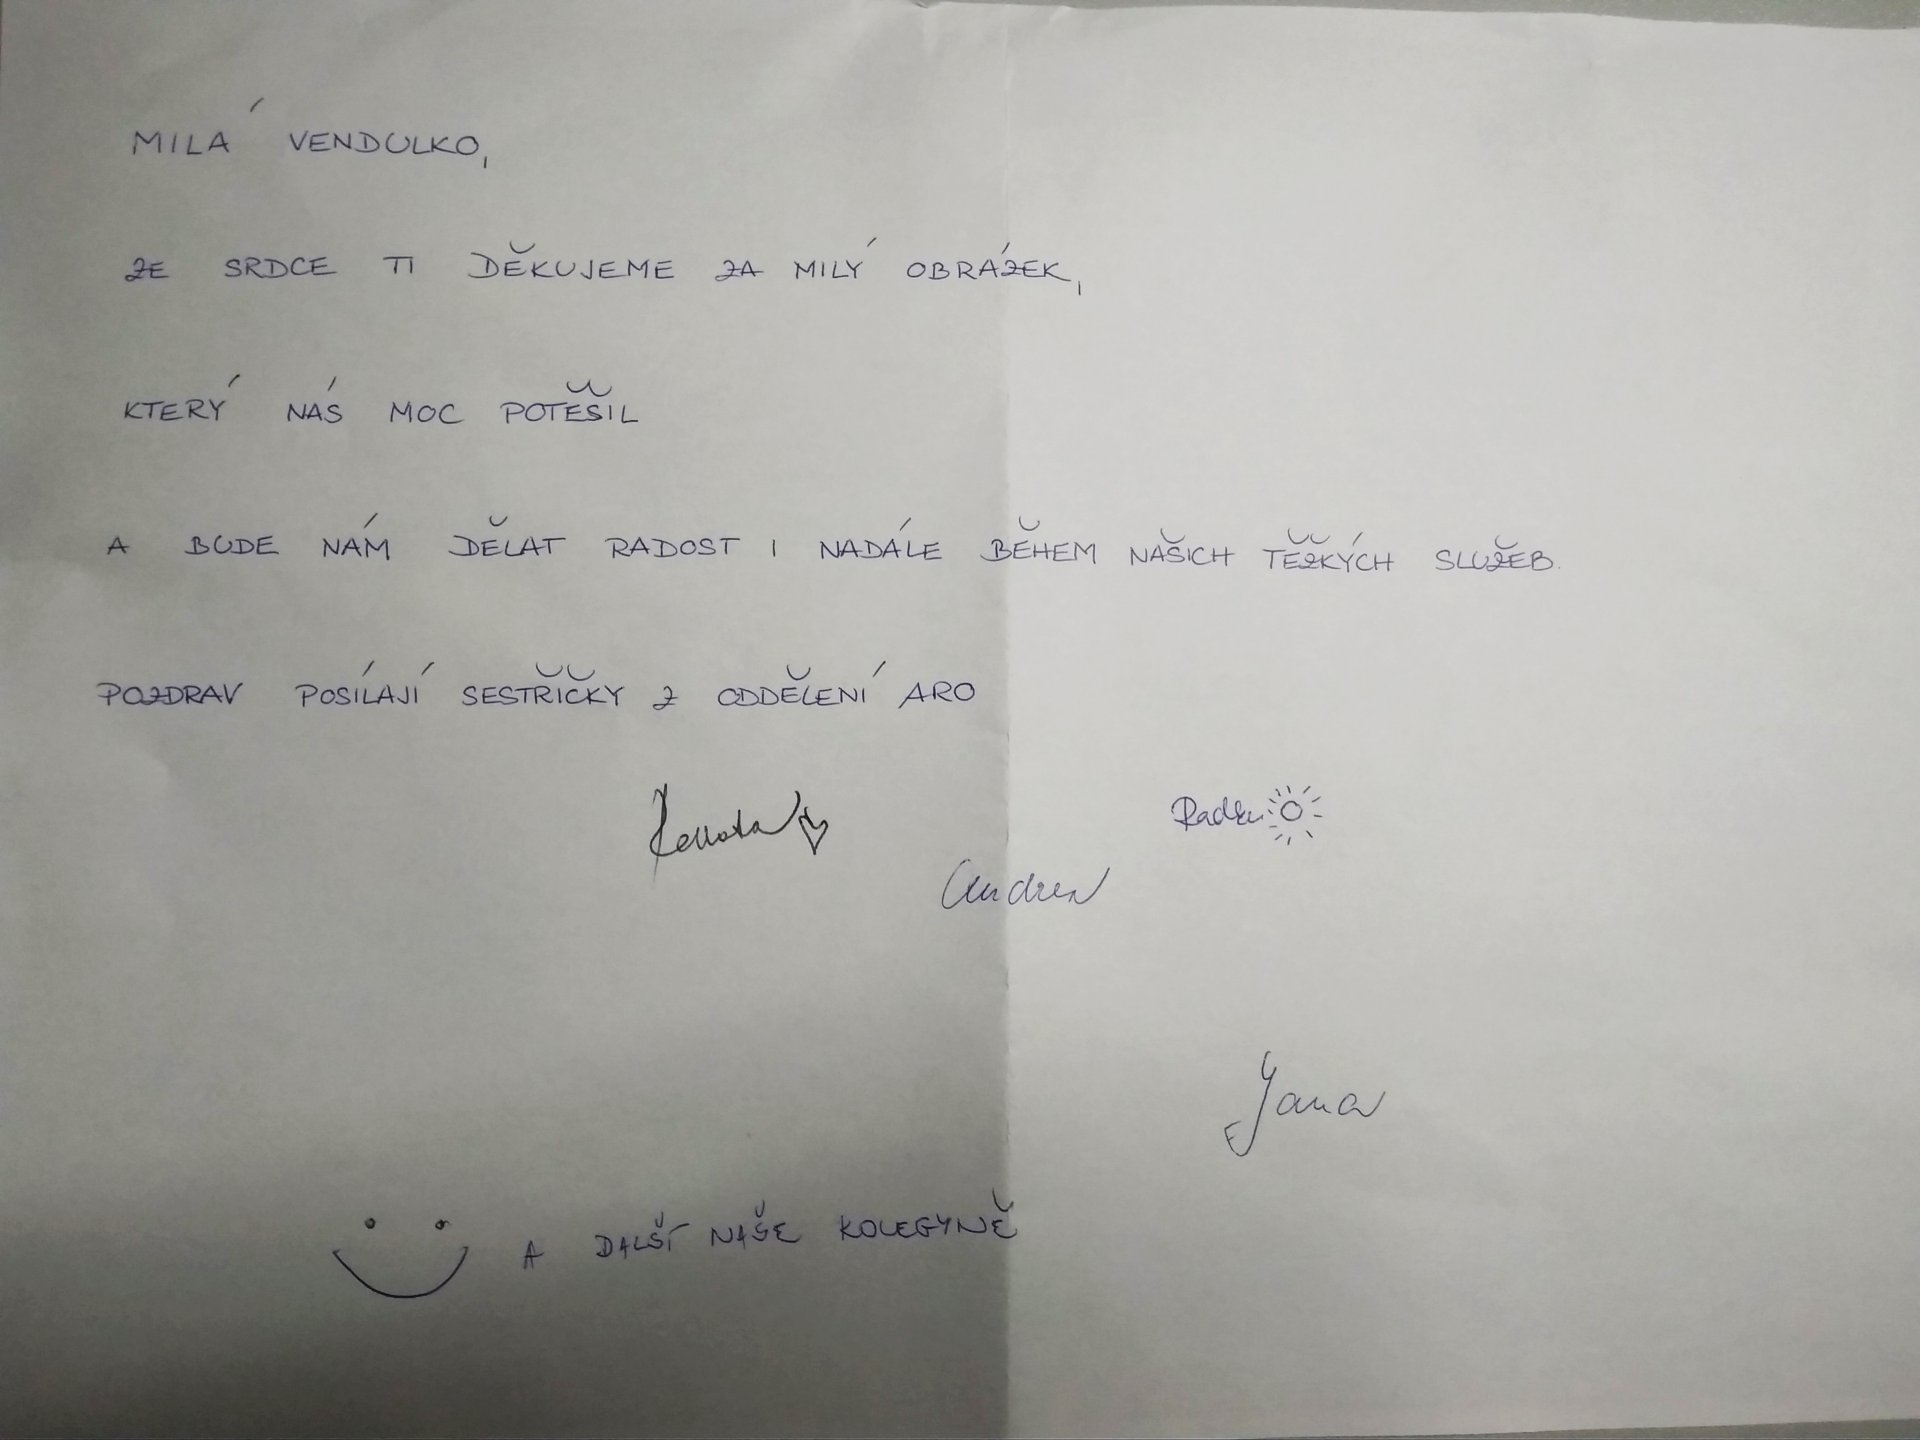 MILÁ VENDULKO,
ZE SRDCE TI DĚKUJEME ZA MILÝ OBRÁZEK,
KTERÝ NÁS MOC POTĚŠIL
A BUDE NÁM DĚLAT RADOST I NADÁLE BĚHEM NAŠICH TĚŽKÝCH SLUŽEB.
POZDRAV POSÍLAJÍ SESTŘIČKY Z ODDĚLENÍ ARO
Renata
Radka
Andrea
Jana
A DALŠÍ NAŠE KOLEGYNĚ